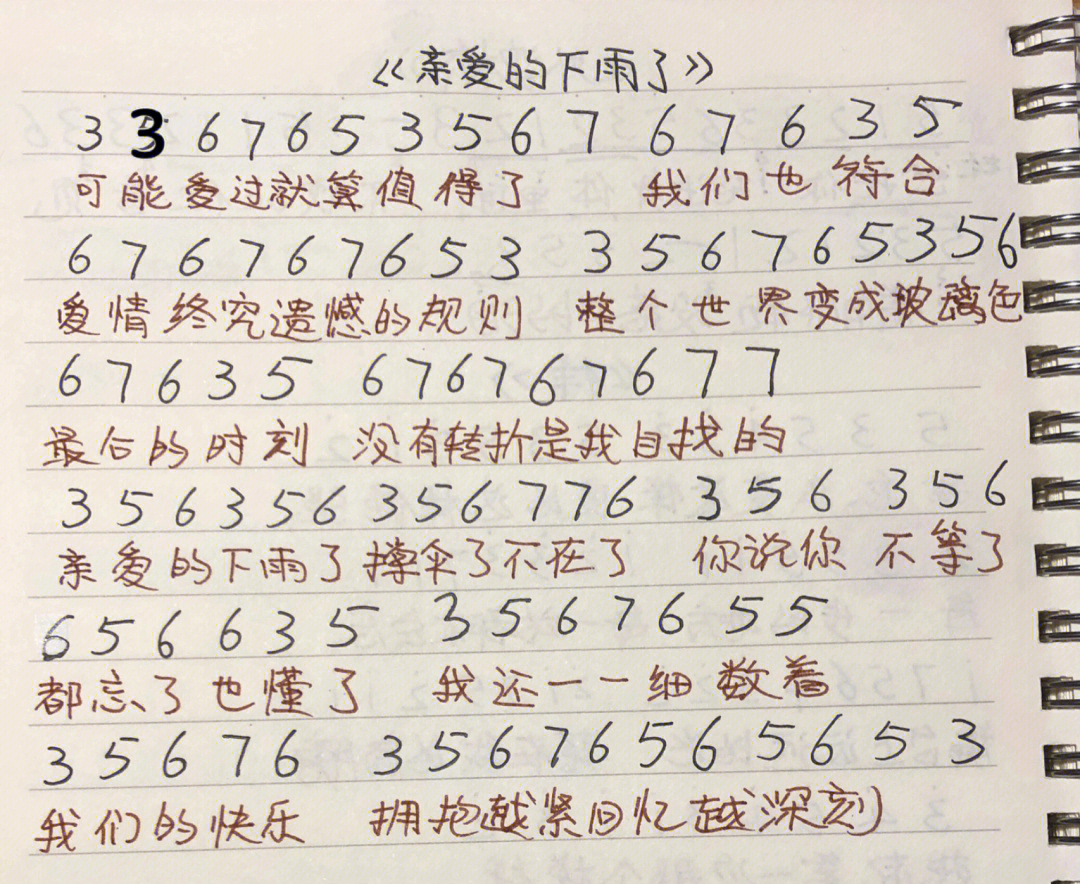 《亲爱的下雨了》
3 3 6 7 6 5 3 5 6 7 6 7 6 3 5
可能爱过就算值得了 我们也符合
6 7 6 7 6 7 6 5 3 3 5 6 7 6 5 3 5 6
爱情终究遗憾的规则 整个世界变成玻璃色
6 7 6 3 5 6 7 6 7 6 7 6 7 7
最后的时刻 没有转折是我自找的
3 5 6 3 5 6 3 5 6 7 7 6 3 5 6 3 5 6
亲爱的下雨了撑伞了不在了 你说你 不等了
6 5 6 6 3 5 3 5 6 7 6 5 5
都忘了也懂了 我还一一细数着
3 5 6 7 6 3 5 6 7 6 5 6 5 6 5 3
我们的快乐 拥抱越紧回忆越深刻